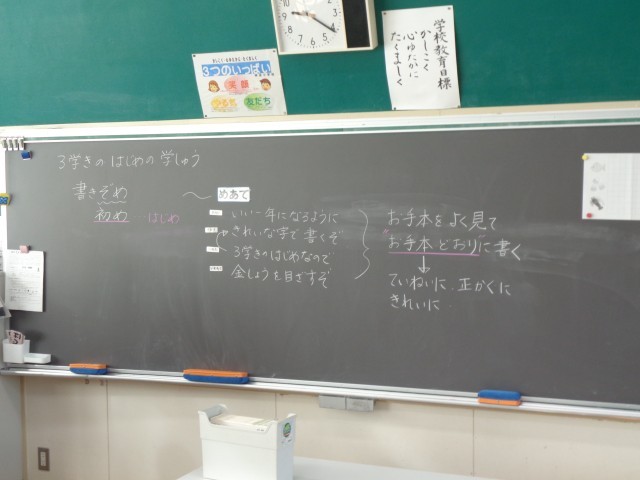 学校教育目標
かしこく
心ゆたかに
たくましく
3つのいっぱい
笑顔
友だち
3学きの はじめの 学しゅう
書きぞめ
初め はじめ
めあて
いい一年になるように
きれいな字で書くぞ
3学きのはじめなので
金しょうを目ざすぞ
お手本をよく見て
お手本どおりに書く
ていねいに、正かくに
きれいに